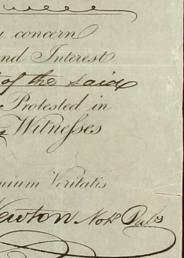 concern
and Interest
of the said
Protested in
Witnesses
nium Veritatis
Newton Not. Pub.